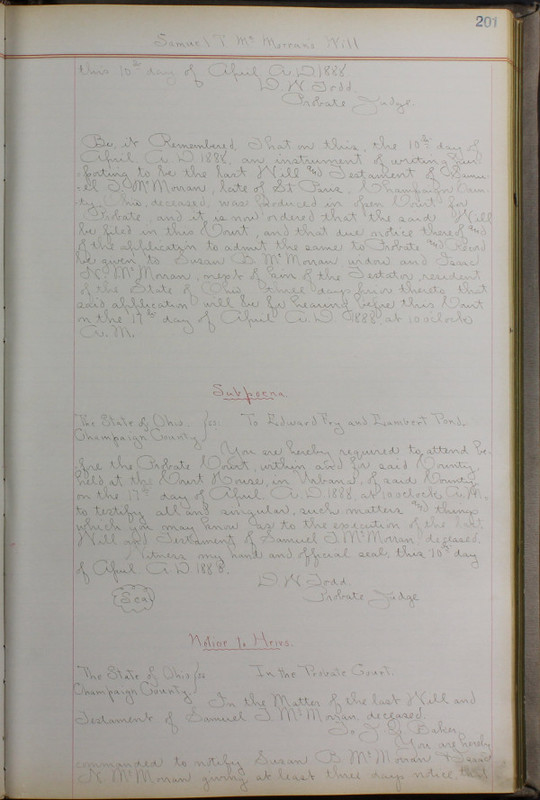 201
Samuel T. McMorran's Will
this 10th day of April A.D. 1888
D. W. Todd
Probate Judge.
Be it Remembered, That on this, the 10th day of
April A.D. 1888, an instrument of writing pur-
porting to be the last Will and Testament of Samu-
el T. McMorran, late of St Paris, Champaign Coun-
ty, Ohio, deceased, was produced in open Court for
Probate, and it is now ordered that the said Will
be filed in this Court, and that due notice thereof and
of the application to admit the same to Probate and Record
be given to Susan B. McMorran widow and Isaac
N. McMorran, next of kin of the Testator, resident
of the State of Ohio, three days prior thereto, that
said application will be for hearing before this Court
on the 17th day of April A.D. 1888, at 10 o'clock
A.M.
Subpoena
The State of Ohio } ss. To Edward Fry and Lambert Pond.
Champaign County
You are hereby required to attend be-
fore the Probate Court, within and for said County,
held at the Court House, in Urbana, of said County
on the 17th day of April A.D. 1888, at 10 o'clock A.M.
to testify all and singular, such matters and things
which you may know as to the execution of the last
Will and Testament of Samuel T. McMorran deceased.
Witness my hand and official seal, this 10th day
of April A.D. 1888.
D W Todd
Seal Probate Judge
Notice to Heirs.
The State of Ohio } ss In the Probate Court.
Champaign County
In the Matter of the last Will and
Testament of Samuel T. McMorran, deceased.
To Baker,
You are hereby
commanded to notify Susan B. McMorran & Isaac
N. McMorran giving at least three days notice that